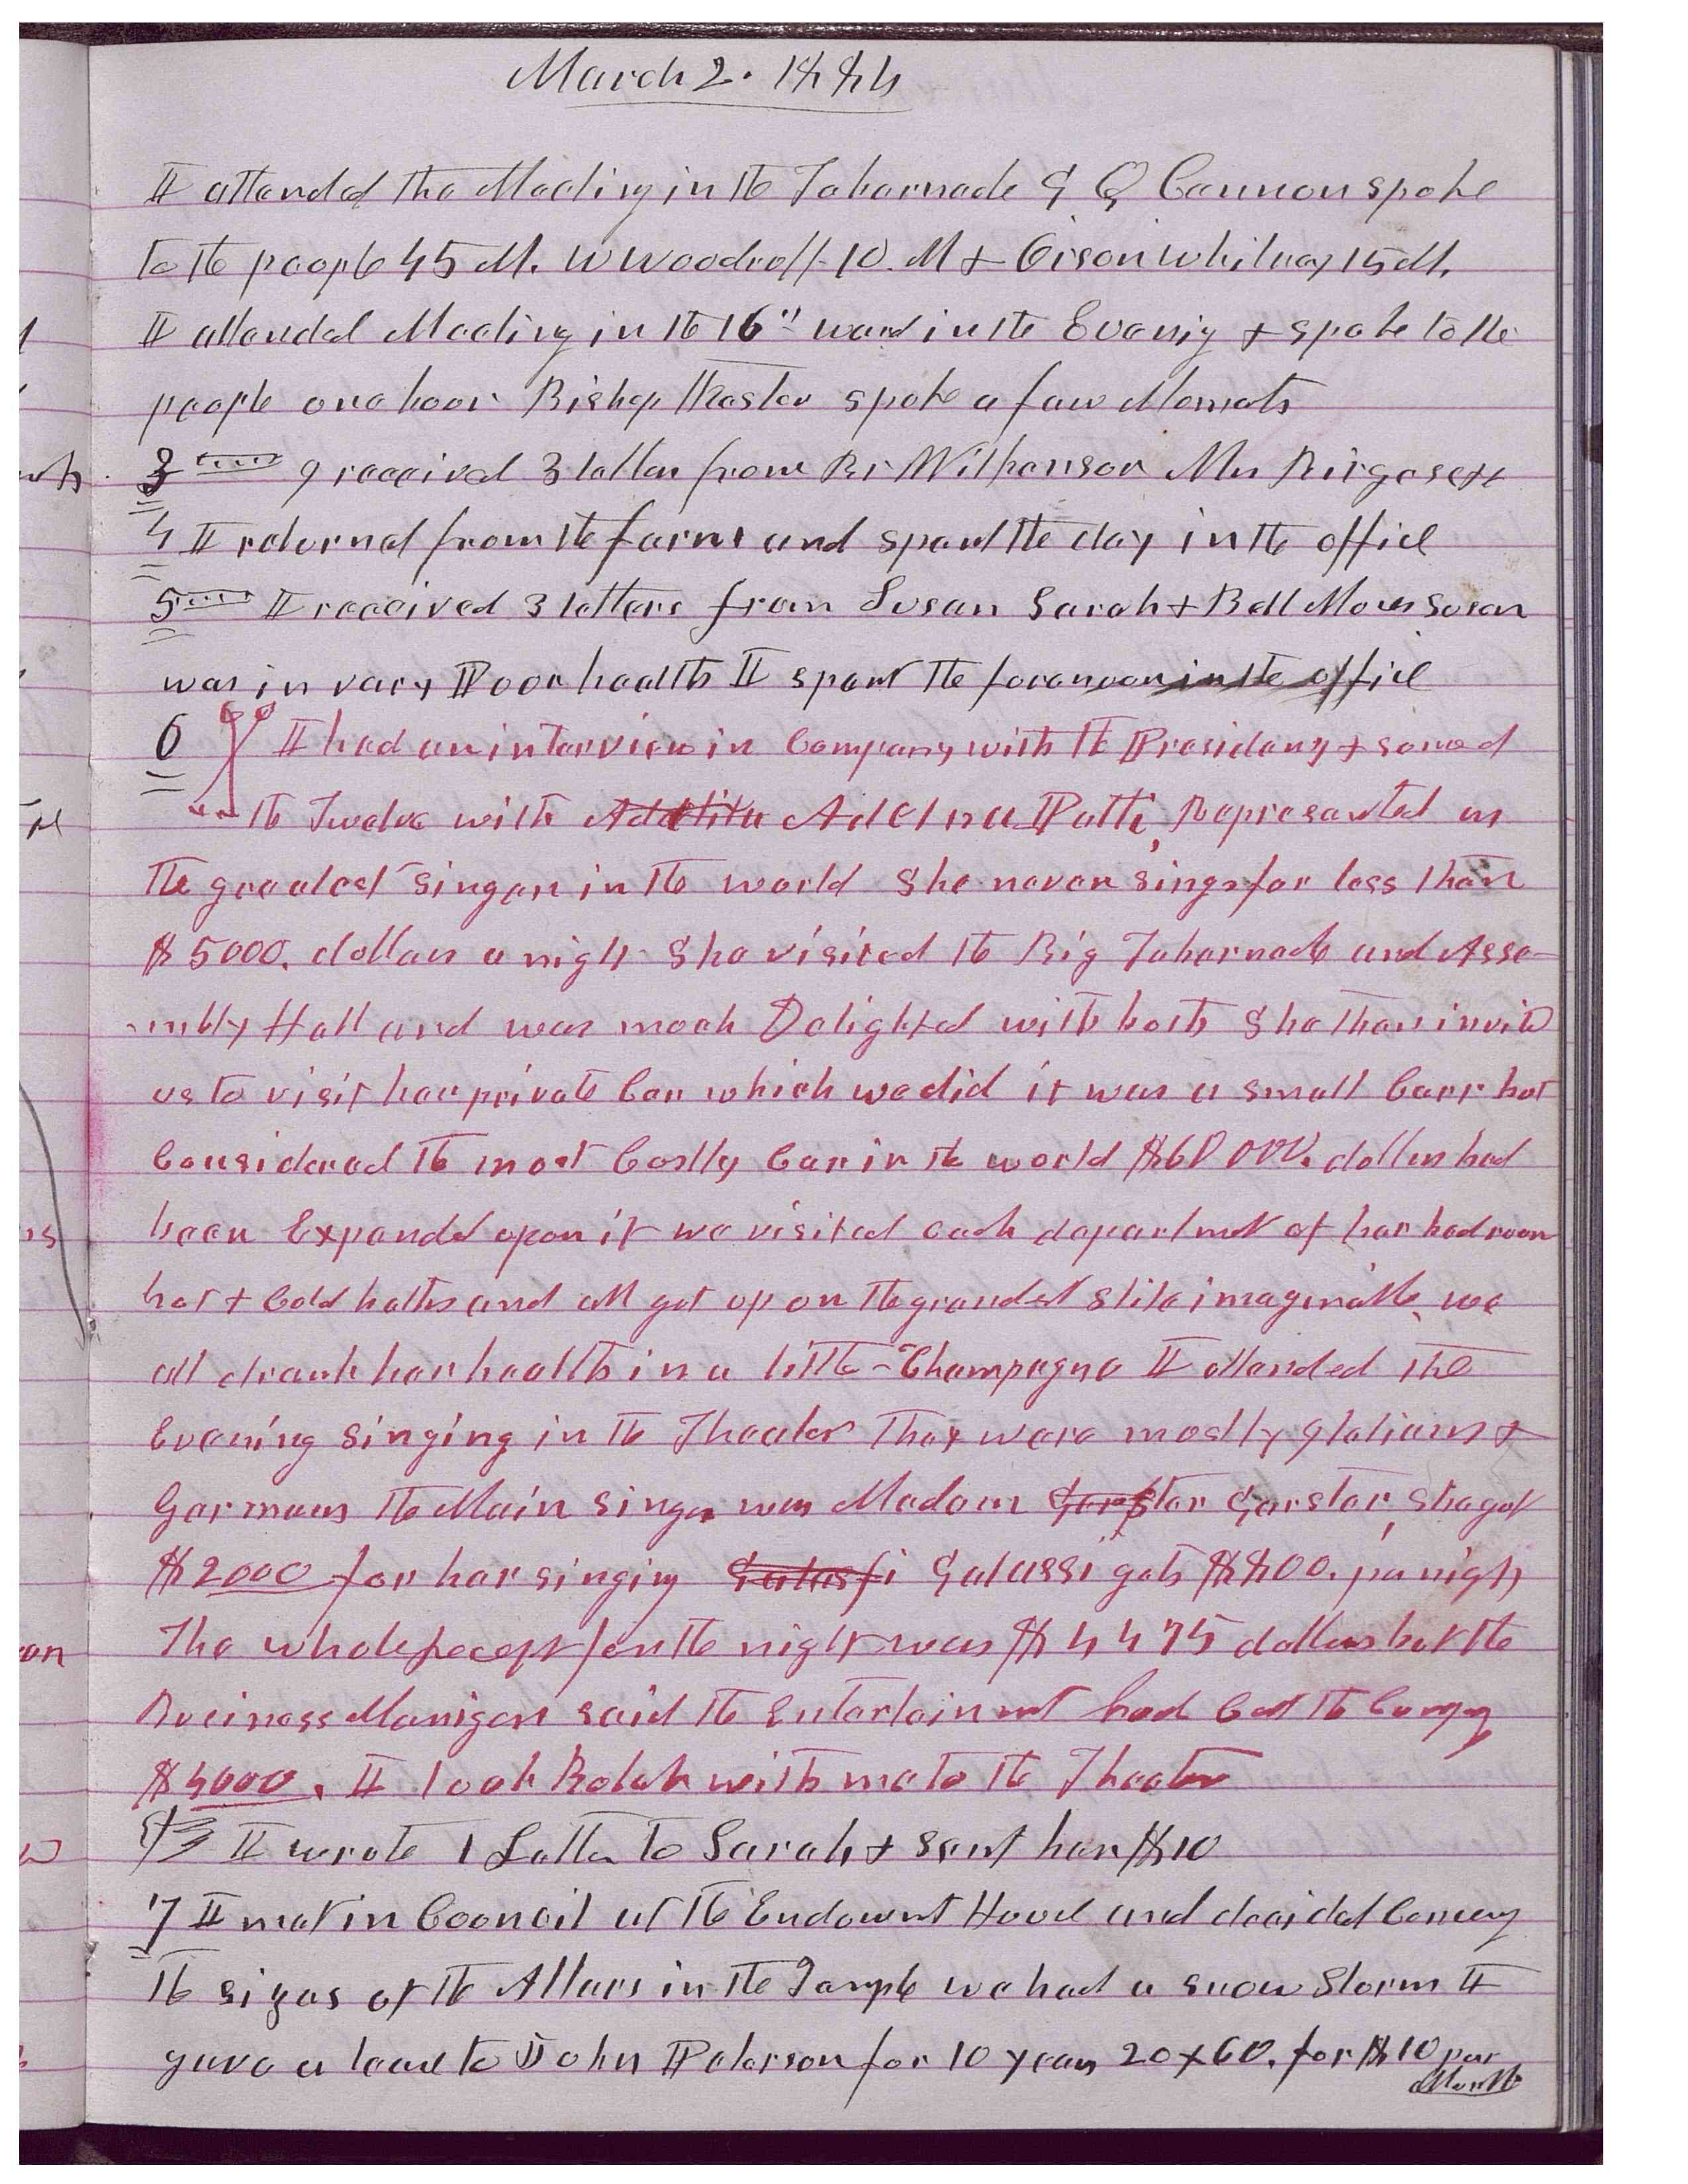 March 2. 1884
I attended the Meeting in the Tabernacle G Q Cannon spoke
to the people 45 M. W Woodruff 10. M & Orson Whitney 15 M.
I attended Meeting in the 16th ward in the Evenig & spoke to the
people one hour Bishop Kesler spoke a few Moments
3 I received 3 letters from Br Wilkenson Mrs Birges &c
4 I returned from the farm and spent the day in the office
5 I received 3 letters from Susan Sarah & Bell Moses Susan
was in very Poor health I spent the forenoon in the office
6 I had an interview in Company with the Presidency & some of
the Twelve with Addlitu Adelina Patti, Represented as
the greatest singer in the world She never sings for less than
$5000. dollars a night She visited the Big Tabernacle and Asse-
-mbly Hall and was much Delighted with both She then invited
us to visit her private Car which we did it was a small Carr but
Considered the most Costly Car in the world $60000. dollars had
been Expended upon it we visited each department of her bedroom
hot & Cold baths and all got up on the grandest stile imaginable, we
all drank her health in a little Champagne I attended the
Evening singing in the Theater They were mostly Italians &
Germans the Main singer was Madam Gerster Gerster, she got
$2000 for her singing Galassi Galassi gets $800. per night
The whole recept for the night was $4475 dollars but the
Buisness Manigers said the Entertainment had Cost the Company
$4000. I took Bulah with me to the Theater
I wrote 1 Letter to Sarah & sent her $10
7 I met in Council at the Endowment House and decided Concerning
the sizes of the Altars in the Temple we had a snow Storm I
gave a lease to John Peterson for 10 years 20 x 60. for $10 per
Month